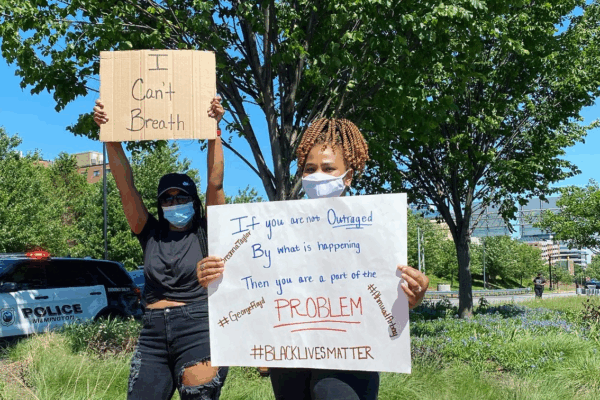 I
Can't
Breath
If you are not Outraged
By what is happening
Then you are a part of the
PROBLEM
#BreonnaTaylor
#GeorgeFloyd
#AhmaudArbery
#BLACKLIVESMATTER
POLICE
WILMINGTON